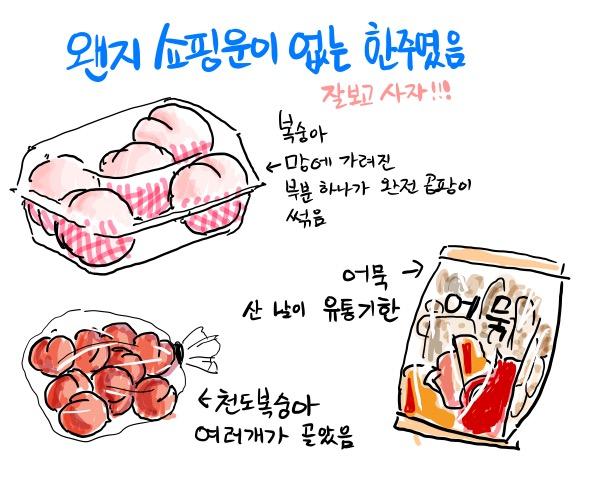 왠지 쇼핑운이 없는 한주였음
잘보고 사자!!!
복숭아
← 망에 가려진
부분 하나가 완전 곰팡이
썪음
어묵 →
산 날이 유통기한
어묵
← 천도복숭아
여러개가 곯았음